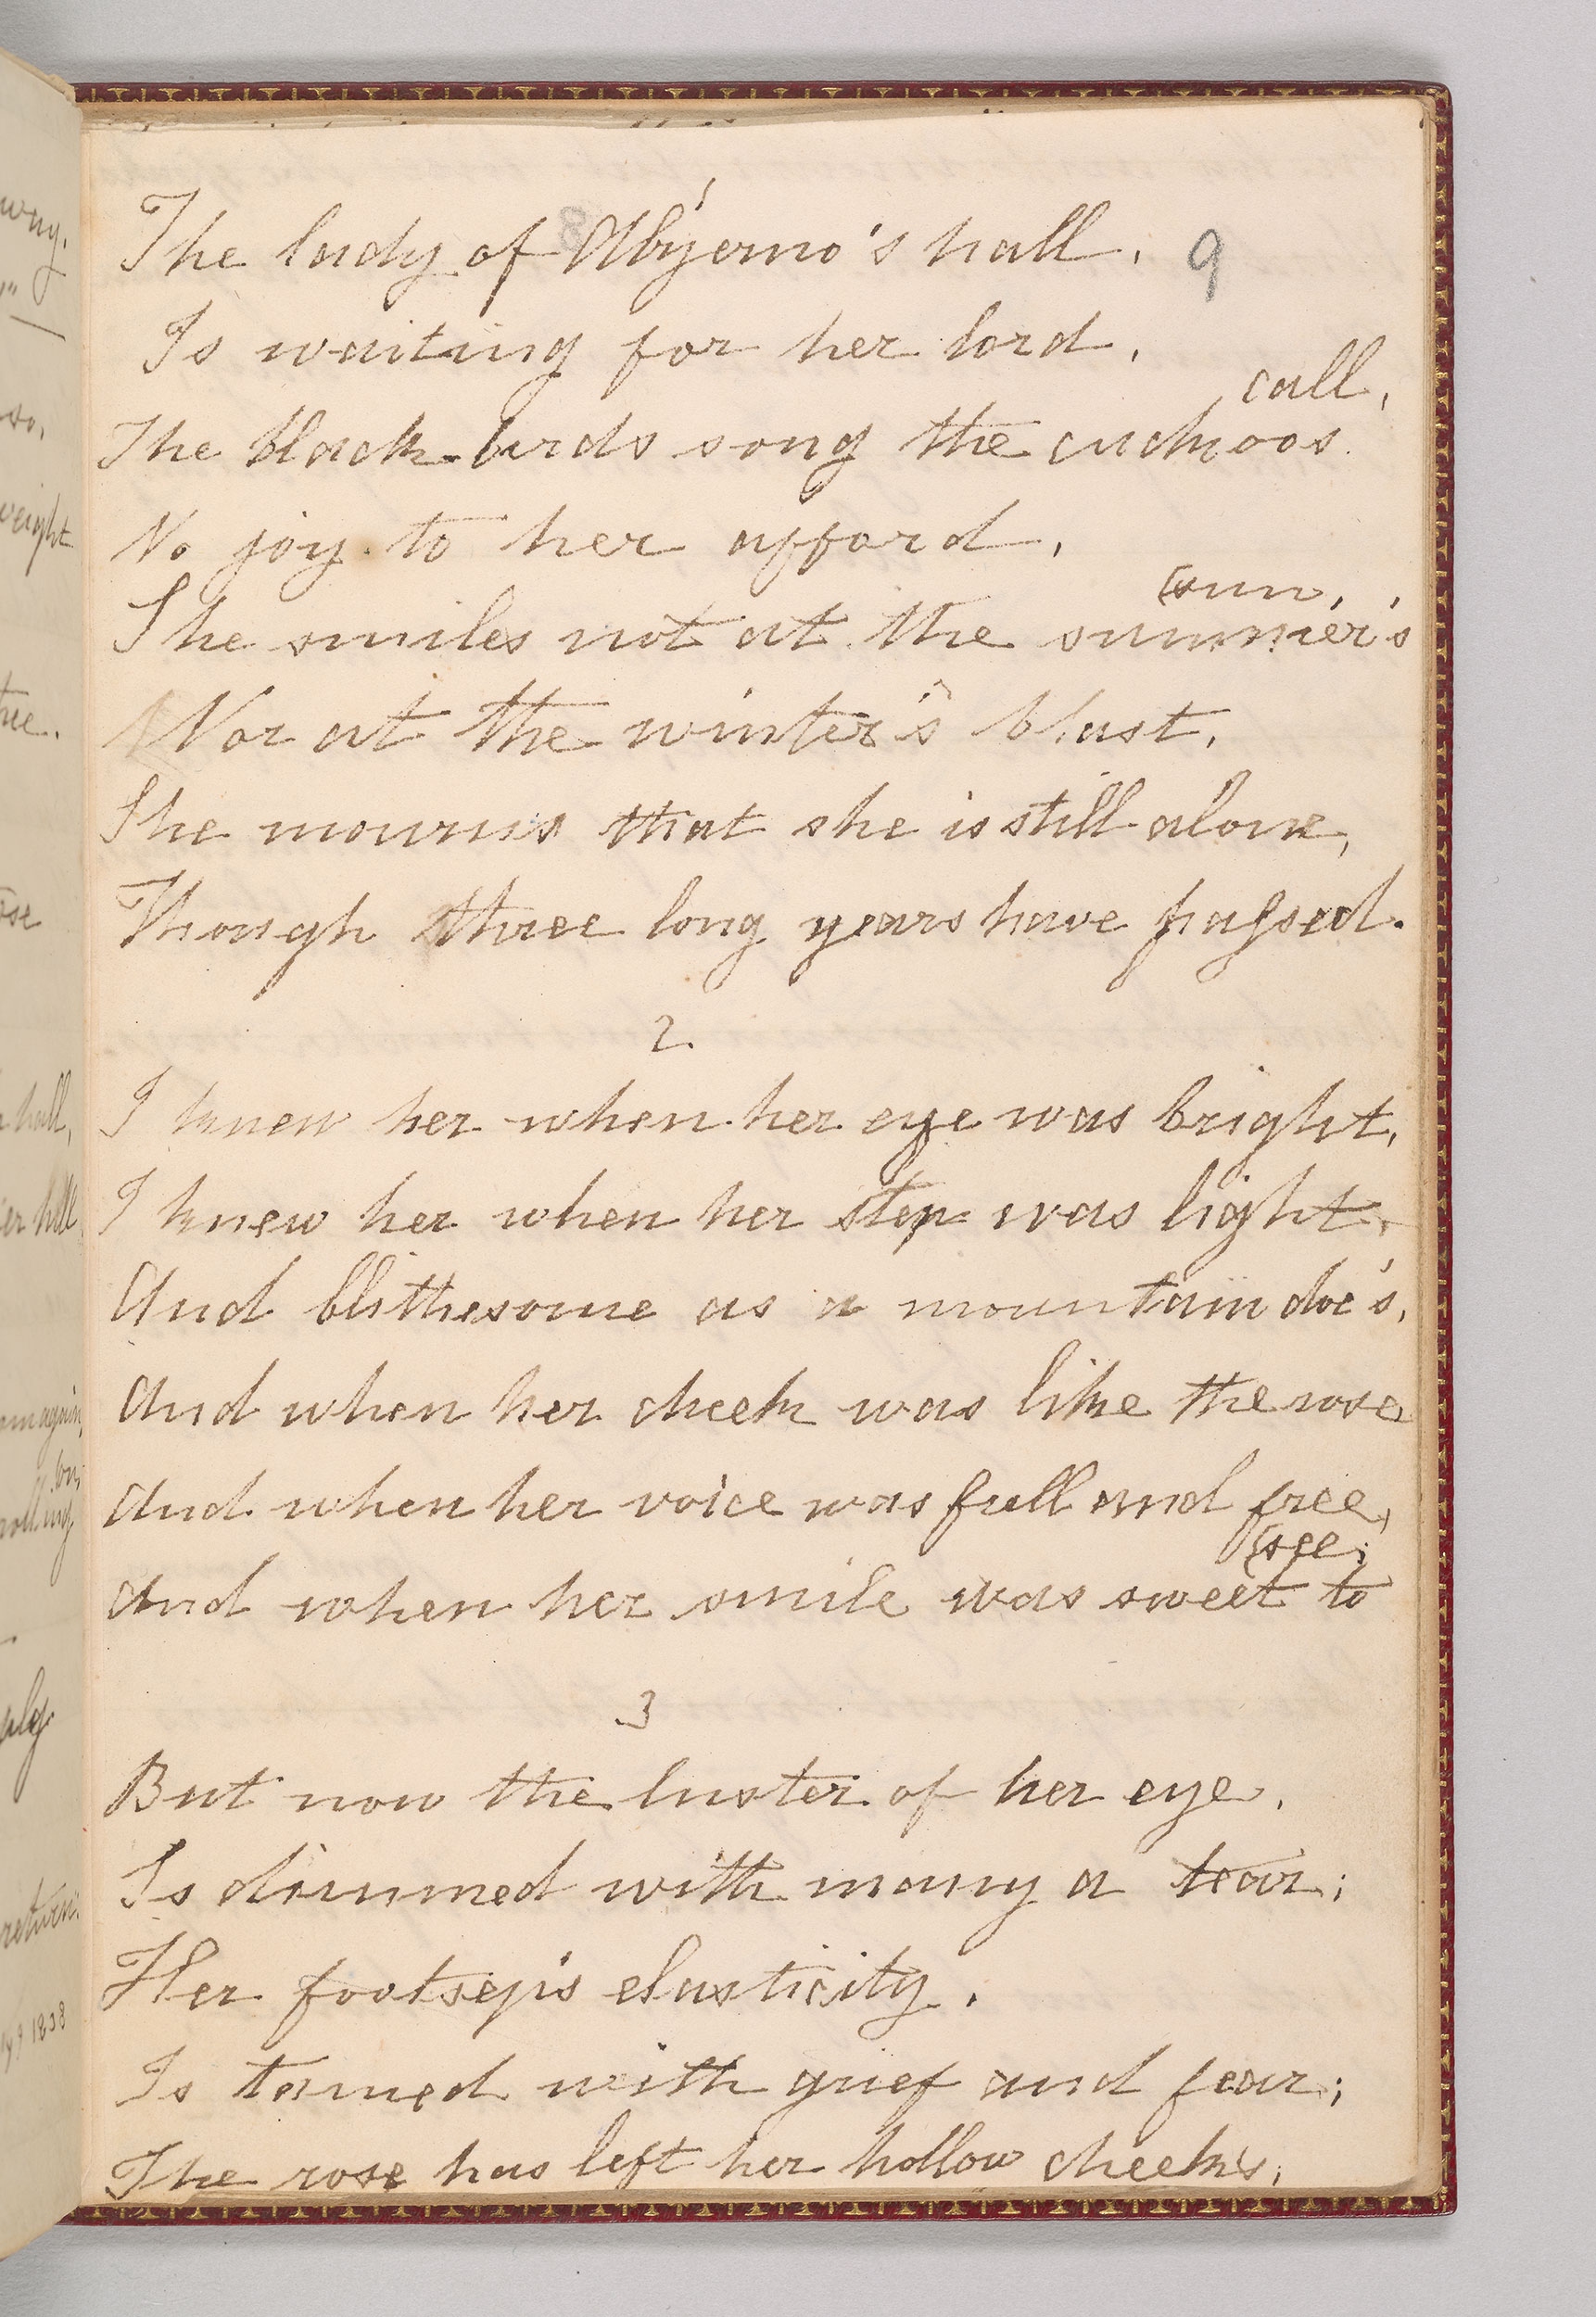 The lady of Abyerno's hall, 9
Is waiting for her lord,
The black-birds song the cuckoos call,
No joy to her afford,
She smiles not at the summer's sun,
Nor at the winter's blast,
She mourns that she is still alone,
Though three long years have passed.
2.
I knew her when her eye was bright,
I knew her when her step was light,
And blithesome as a mountain doe's,
And when her cheek was like the rose
And when her voice was full and free,
And when her smile was sweet to see;
3
But now the luster of her eye,
Is dimmed with many a tear;
Her footseps elasticity,
Is tamed with grief and fear;
The rose has left her hollow cheeks;